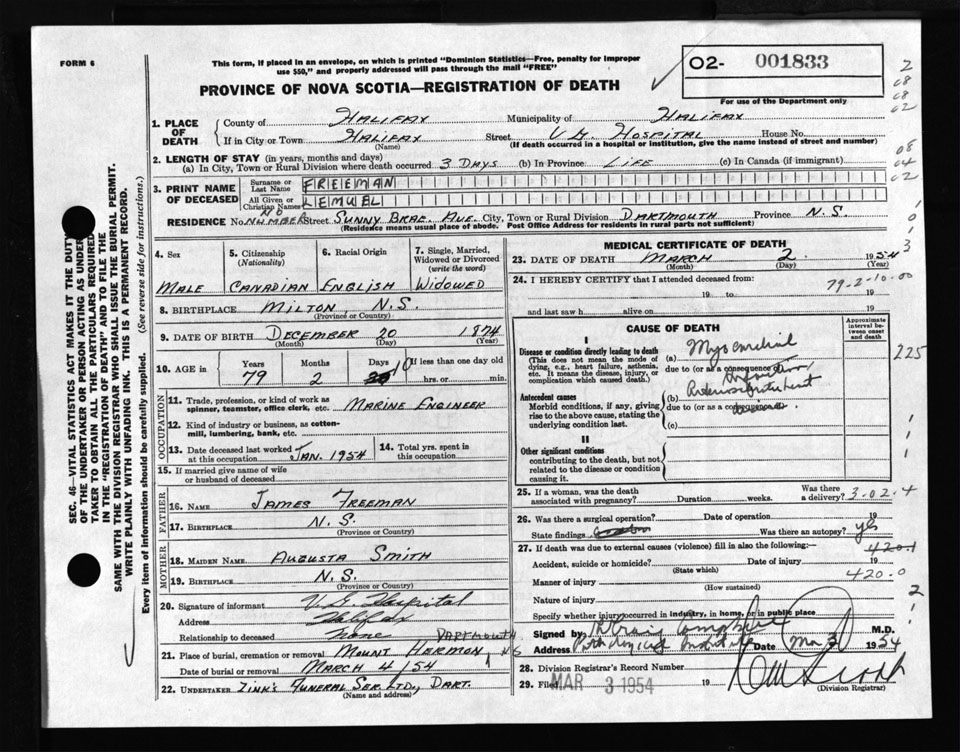 FORM 6
This form, if placed in an envelope, on which is printed "Dominion Statistics—Free, penalty for improper
use $50," and properly addressed will pass through the mail "FREE"
O2- 001833
For use of the Department only
PROVINCE OF NOVA SCOTIA—REGISTRATION OF DEATH
1. PLACE OF DEATH
County of HALIFAX Municipality of HALIFAX
If in City or Town HALIFAX Street V G. HOSPITAL House No.
(Name) (If death occurred in a hospital or institution, give the name instead of street and number)
2. LENGTH OF STAY (in years, months and days)
(a) In City, Town or Rural Division where death occurred 3 DAYS (b) In Province LIFE (c) In Canada (if immigrant)
3. PRINT NAME OF DECEASED
Surname or Last Name FREEMAN
All Given or Christian Names LEMUEL
RESIDENCE No. NO NUMBER Street SUNNY BRAE. AVE. City, Town or Rural Division DARTMOUTH Province N.S.
(Residence means usual place of abode. Post Office Address for residents in rural parts not sufficient)
4. Sex MALE
5. Citizenship (Nationality) CANADIAN
6. Racial Origin ENGLISH
7. Single, Married, Widowed or Divorced (write the word) WIDOWED
8. BIRTHPLACE MILTON N.S.
(Province or Country)
9. DATE OF BIRTH DECEMBER 20 1874
(Month) (Day) (Year)
10. AGE in Years 79 Months 2 Days 10 If less than one day old
hrs. or min.
OCCUPATION
11. Trade, profession, or kind of work as
spinner, teamster, office clerk, etc. MARINE ENGINEER
12. Kind of industry or business, as cotton-
mill, lumbering, bank, etc.
13. Date deceased last worked at this occupation JAN. 1954
14. Total yrs. spent in this occupation
15. If married give name of wife
or husband of deceased
FATHER
16. NAME JAMES FREEMAN
17. BIRTHPLACE N.S.
(Province or Country)
MOTHER
18. MAIDEN NAME AUGUSTA SMITH
19. BIRTHPLACE N.S.
(Province or Country)
20. Signature of informant V.G. Hospital
Address Halifax
Relationship to deceased None
21. Place of burial, cremation or removal MOUNT HERMON DARTMOUTH NS
Date of burial or removal MARCH 4/54
22. UNDERTAKER ZINK'S FUNERAL SER. LTD., DART.
(Name and address)
MEDICAL CERTIFICATE OF DEATH
23. DATE OF DEATH MARCH 2. 1954
(Month) (Day) (Year)
24. I HEREBY CERTIFY that I attended deceased from: 79-2-10-00
19 to 19
and last saw h alive on 19
CAUSE OF DEATH
Approximate interval between onset and death
I
Disease or condition directly leading to death
(This does not mean the mode of
dying, e.g., heart failure, asthenia,
etc. It means the disease, injury, or
complication which caused death.)
(a) Myocardial
due to (or as a consequence of)
Infarction
Antecedent causes
Morbid conditions, if any, giving
rise to the above cause, stating the
underlying condition last.
(b)
due to (or as a consequence of)
(c)
II
Other significant conditions
contributing to the death, but not
related to the disease or condition
causing it.
25. If a woman, was the death
associated with pregnancy? Duration weeks. Was there a delivery? 3-02-4
26. Was there a surgical operation? Date of operation 19
State findings Was there an autopsy? yes
27. If death was due to external causes (violence) fill in also the following:— 420.1
Accident, suicide or homicide? Date of injury 19
(State which) 420.0
Manner of injury
(How sustained)
Nature of injury
Specify whether injury occurred in industry, in home, or in public place
Signed by M.D.
Address Pathology Institute Date Mar 3 1954
28. Division Registrar's Record Number
29. Filed MAR 3 1954 19
(Division Registrar)
SEC. 46—VITAL STATISTICS ACT MAKES IT THE DUTY
OF THE UNDERTAKER OR PERSON ACTING AS UNDER-
TAKER TO OBTAIN ALL THE PARTICULARS REQUIRED
IN THE "REGISTRATION OF DEATH" AND TO FILE THE
SAME WITH THE DIVISION REGISTRAR WHO SHALL ISSUE THE BURIAL PERMIT.
WRITE PLAINLY WITH UNFADING INK. THIS IS A PERMANENT RECORD.
Every item of information should be carefully supplied. (See reverse side for instructions.)
2
08
08
02
08
04
02
225
2